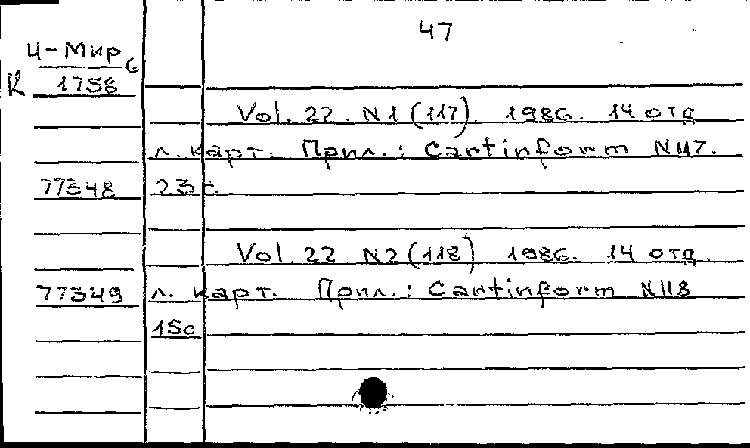 47
Ч-Мир
К 1758
Vol. 22. N1 (117). 1986. 14 отд
л. карт. Прил.: Cartinform N117.
77348 23 с.
Vol 22 N2 (118) 1986. 14 отд.
77349 л. карт. Прил.: Cartinform N118
15с